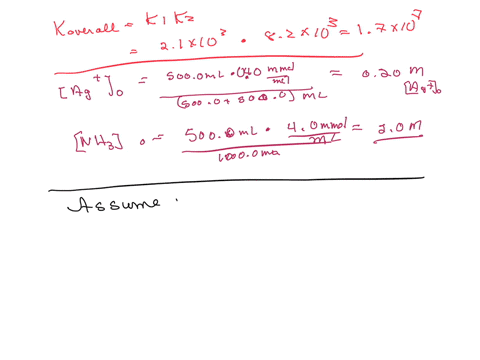 Koverall = K1 K2
= 2.1×10³ • 8.2×10³ = 1.7×10⁷
[Ag⁺]₀ = 500.0mL • 0.40 mmol/mL / (500.0+500.0) mL = 0.20 M [Ag⁺]₀
[NH₃]₀ = 500.0mL • 4.0mmol/mL / 1000.0mL = 2.0 M
Assume :